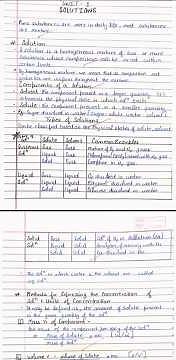 UNIT - 1
SOLUTIONS
Pure substances are used in daily life, most substances
are mixture.
* Solution
A solution is a homogeneous mixture of two or more
substances whose composition can be varied within
certain limits.
By homogeneous mixture we mean that its composition and
properties are uniform throughout the mixture.
Components of a Solution
Solvent: the component present in a large quantity. It
determines the physical state in which solⁿ exists.
Solute: the component present in a smaller quantity.
Eg: Sugar dissolved in water (Sugar: solute, water: solvent)
Types of Solutions
Solute Solvent Common Examples
Gaseous Gas Gas Mixture of O₂ and N₂ gases
Solⁿ Liquid Gas Chloroform mixed with N₂ gas
Solid Gas Camphor in N₂ gas
Liquid Gas Liquid O₂ dissolved in water
Solⁿ Liquid Liquid Ethanol dissolved in water
Solid Liquid Glucose dissolved in water
Solid Gas Solid Solⁿ of H₂ in Palladium (Pd)
Solⁿ Liquid Solid Amalgam of mercury with Na
Solid Solid Cu dissolved in Au
The solⁿ in which water is the solvent are called
aq. solⁿ
* Methods for Expressing the Concentration of
Solⁿ & Units of Concentration
It may be defined as the amount of solute present
in the given quantity of the solⁿ
Mass % of Component
Mass of the component per 100g of the solⁿ
Mass of solute × 100 [w/w]
Mass of solⁿ
Volume % = volume of solute × 100 [v/v]